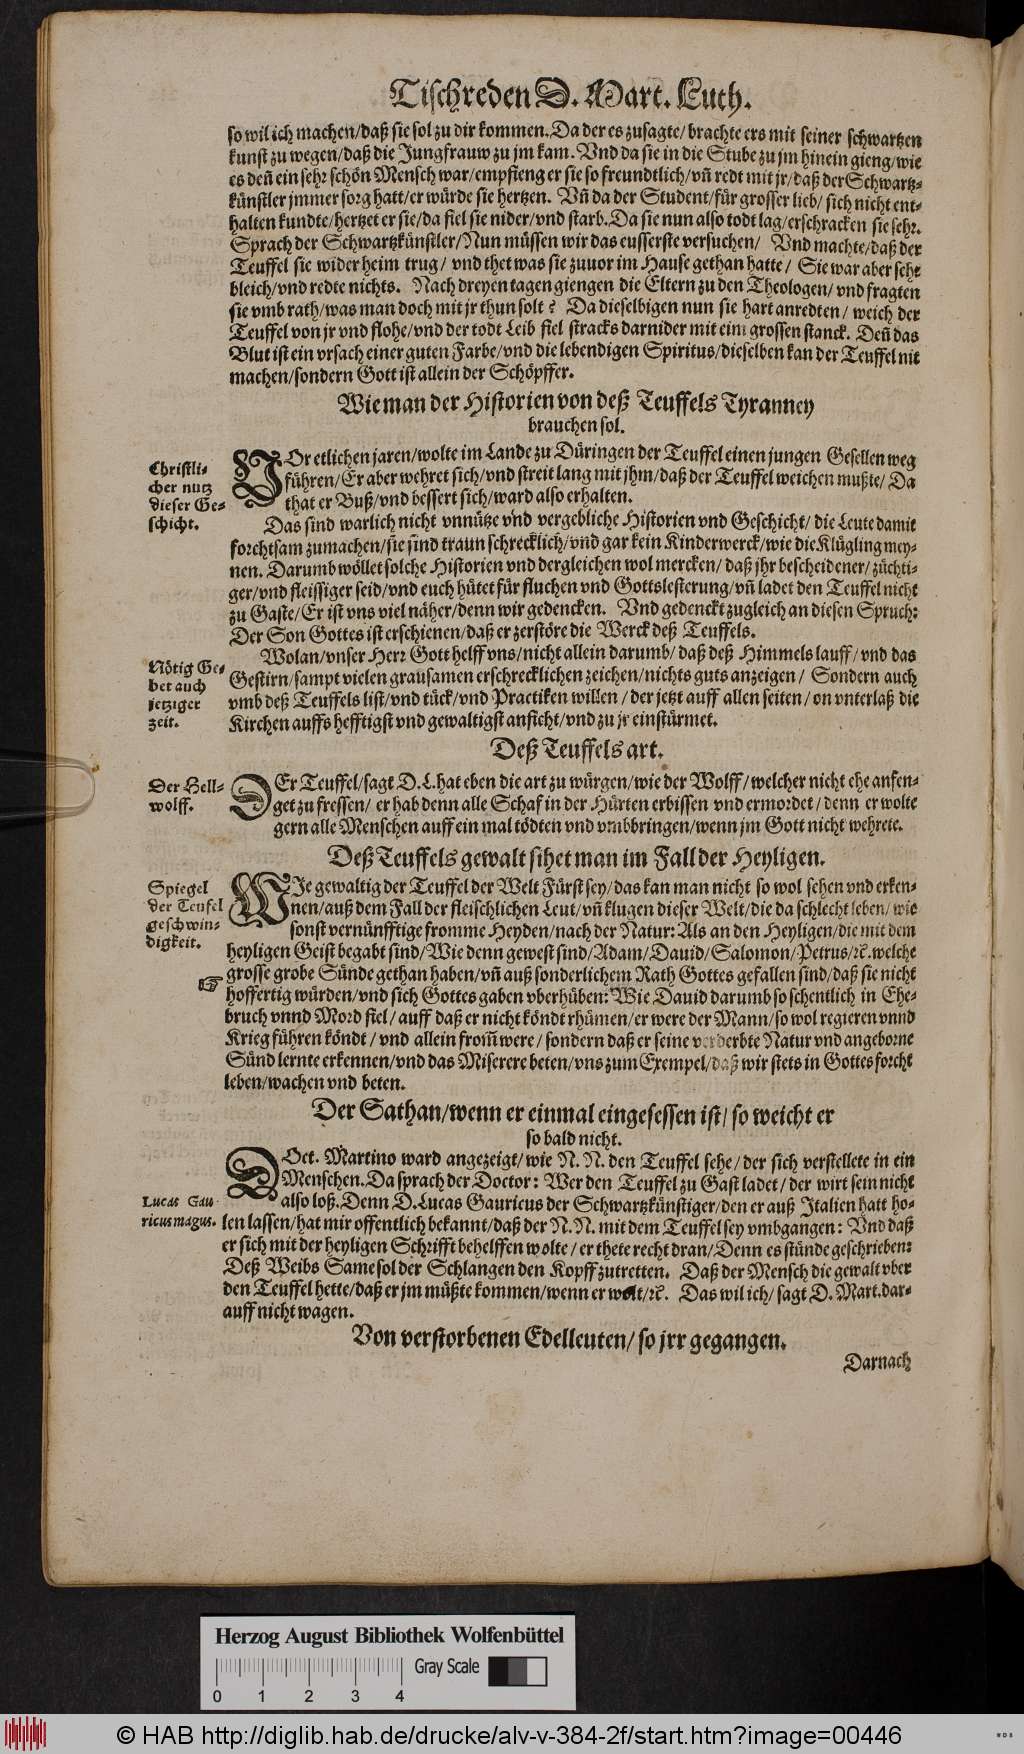 Tischreden D. Mart. Luth.
so wil ich machen/daß sie sol zu dir kommen. Da der es zusagte/ brachte ers mit seiner schwartzen
kunst zu wegen/daß die Jungfrauw zu jm kam. Vnd da sie in die Stube zu jm hinein gieng/wie
es deñ ein sehr schön Mensch war/empfieng er sie so freundtlich/vñ redt mit jr/daß der Schwartz-
künstler jmmer sorg hatt/er würde sie hertzen. Vñ da der Student/für grosser lieb/ sich nicht ent-
halten kundte/hertzet er sie/da fiel sie nider/vnd starb. Da sie nun also todt lag/erschracken sie sehr.
Sprach der Schwartzkünstler/Nun müssen wir das eusserste versuchen/ Vnd machte/daß der
Teuffel sie wider heim trug/ vnd thet was sie zuuor im Hause gethan hatte/ Sie war aber sehr
bleich/vnd redte nichts. Nach dreyen tagen giengen die Eltern zu den Theologen/ vnd fragten
sie vmb rath/was man doch mit jr thun solt? Da dieselbigen nun sie hart anredten/ weich der
Teuffel von jr vnd flohe/vnd der todt Leib fiel stracks darnider mit eim grossen stanck. Deñ das
Blut ist ein vrsach einer guten Farbe/vnd die lebendigen Spiritus/dieselben kan der Teuffel nit
machen/sondern Gott ist allein der Schöpffer.
Wie man der Historien von deß Teuffels Tyranney
brauchen sol.
Christli-
cher nutz
dieser Ge-
schicht.
VOr etlichen jaren/wolte im Lande zu Düringen der Teuffel einen jungen Gesellen weg
führen/Er aber wehret sich/vnd streit lang mit jhm/daß der Teuffel weichen mußte/ Da
that er Buß/vnd bessert sich/ward also erhalten.
Das sind warlich nicht vnnütze vnd vergebliche Historien vnd Geschicht/ die Leute damit
forchtsam zumachen/sie sind traun schrecklich/vnd gar kein Kinderwerck/wie die Klügling mey-
nen. Darumb wöllet solche Historien vnd dergleichen wol mercken/ daß jhr bescheidener/züchti-
ger/vnd fleissiger seid/vnd euch hütet für fluchen vnd Gottslesterung/vñ ladet den Teuffel nicht
zu Gaste/Er ist vns viel näher/denn wir gedencken. Vnd gedenckt zugleich an diesen Spruch:
Der Son Gottes ist erschienen/daß er zerstöre die Werck deß Teuffels.
Nötig Ge-
bet auch
jetziger
zeit.
Wolan/vnser Herr Gott helff vns/nicht allein darumb/ daß deß Himmels lauff/ vnd das
Gestirn/sampt vielen grausamen erschrecklichen zeichen/nichts guts anzeigen/ Sondern auch
vmb deß Teuffels list/vnd tück/vnd Practiken willen/ der jetzt auff allen seiten/ on vnterlaß die
Kirchen auffs hefftigst vnd gewaltigst anficht/vnd zu jr einstürmet.
Deß Teuffels art.
Der Hell-
wolff.
DEr Teuffel/sagt D. L. hat eben die art zu würgen/wie der Wolff/welcher nicht ehe anfen-
get zu fressen/ er hab denn alle Schaf in der Hürten erbissen vnd ermordet/ denn er wolte
gern alle Menschen auff ein mal tödten vnd vmbbringen/wenn jm Gott nicht wehrete.
Deß Teuffels gewalt sihet man im Fall der Heyligen.
Spiegel
der Teufel
geschwin-
digkeit.
WJe gewaltig der Teuffel der Welt Fürst sey/das kan man nicht so wol sehen vnd erken-
nen/auß dem Fall der fleischlichen Leut/vñ klugen dieser Welt/die da schlecht leben/wie
sonst vernünfftige fromme Heyden/nach der Natur: Als an den Heyligen/die mit dem
heyligen Geist begabt sind/Wie denn gewest sind/Adam/Dauid/Salomon/Petrus/ꝛc. welche
☞ grosse grobe Sünde gethan haben/vñ auß sonderlichem Rath Gottes gefallen sind/daß sie nicht
hoffertig würden/vnd sich Gottes gaben vberhüben: Wie Dauid darumb so schentlich in Ehe-
bruch vnnd Mord fiel/ auff daß er nicht köndt rhümen/er were der Mann/so wol regieren vnnd
Krieg führen köndt/ vnd allein from̃ were/ sondern daß er seine verderbte Natur vnd angeborne
Sünd lernte erkennen/vnd das Miserere beten/vns zum Exempel/daß wir stets in Gottes forcht
leben/wachen vnd beten.
Der Sathan/wenn er einmal eingesessen ist/ so weicht er
so bald nicht.
DOct. Martino ward angezeigt/wie N. N. den Teuffel sehe/der sich verstellete in ein
Menschen. Da sprach der Doctor: Wer den Teuffel zu Gast ladet/ der wirt sein nicht
Lucas Gau-
ricus magus.
also loß. Denn D. Lucas Gauricus der Schwartzkünstiger/den er auß Italien hatt ho-
len lassen/hat mir offentlich bekannt/daß der N. N. mit dem Teuffel sey vmbgangen: Vnd daß
er sich mit der heyligen Schrifft behelffen wolte/ er thete recht dran/Denn es stünde geschrieben:
Deß Weibs Same sol der Schlangen den Kopff zutretten. Daß der Mensch die gewalt vber
den Teuffel hette/daß er jm müßte kommen/wenn er wolt/ꝛc. Das wil ich/ sagt D. Mart. dar-
auff nicht wagen.
Von verstorbenen Edelleuten/ so jrr gegangen.
Darnach
Herzog August Bibliothek Wolfenbüttel
Gray Scale
0 1 2 3 4
© HAB http://diglib.hab.de/drucke/alv-v-384-2f/start.htm?image=00446